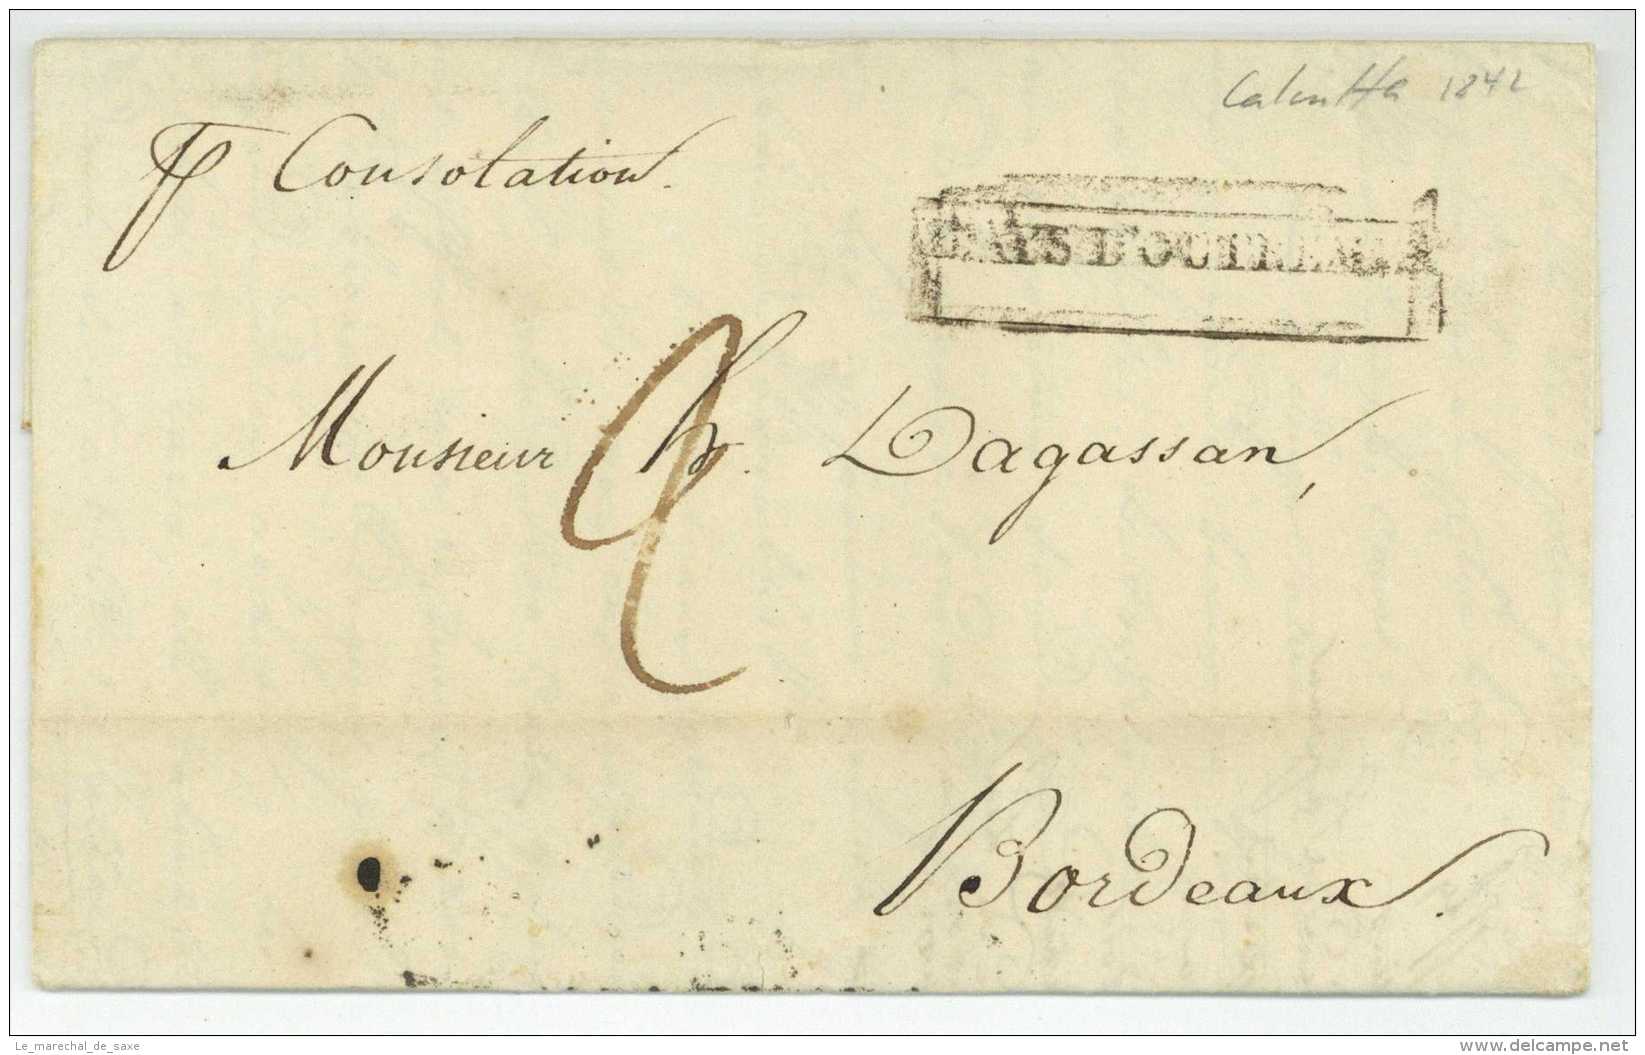 Calcutta 1842
pr Consolation.
PAYS D'OUTREMER
Monsieur Ch. Lagassan,
2
Bordeaux.
Le_marechal_de_saxe
www.delcampe.net